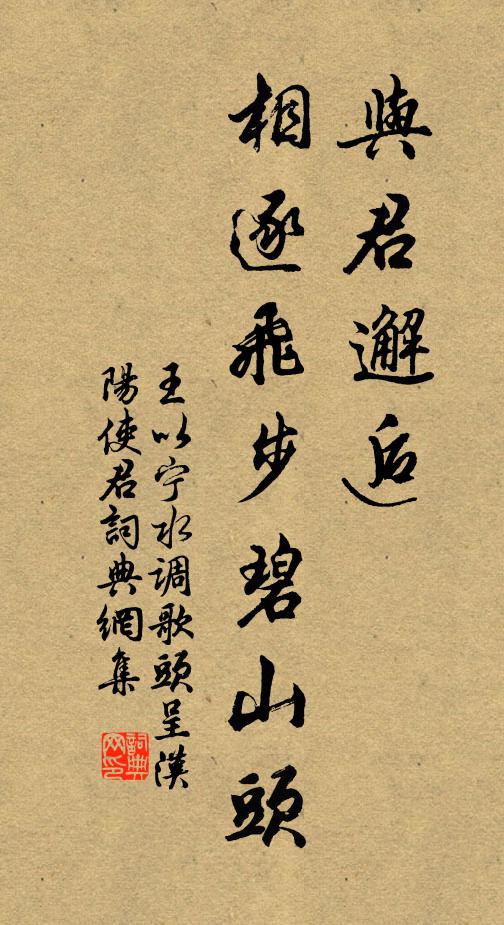 與君邂逅
相逐飛步碧山頭
王以宁水调歌頭呈漢
陽使君詞典網集
詞典
网印